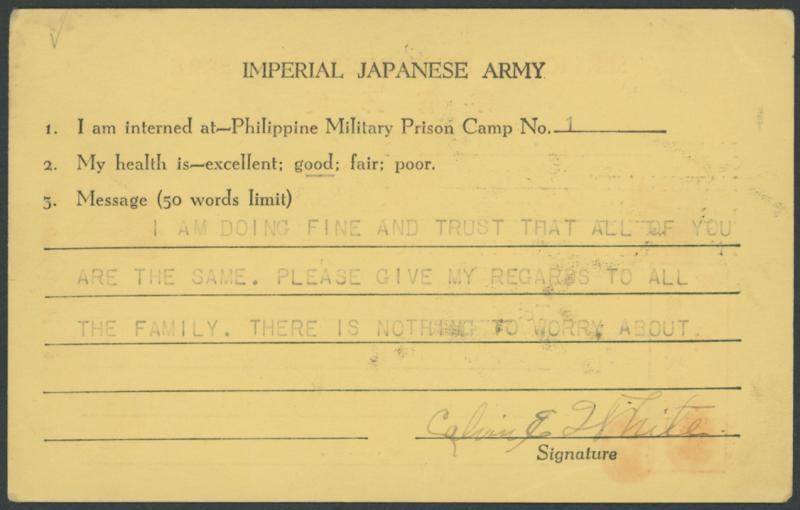 IMPERIAL JAPANESE ARMY
1. I am interned at—Philippine Military Prison Camp No. 1
2. My health is—excellent; good; fair; poor.
3. Message (50 words limit)
I AM DOING FINE AND TRUST THAT ALL OF YOU
ARE THE SAME. PLEASE GIVE MY REGARDS TO ALL
THE FAMILY. THERE IS NOTHING TO WORRY ABOUT.
Calvin E White
Signature